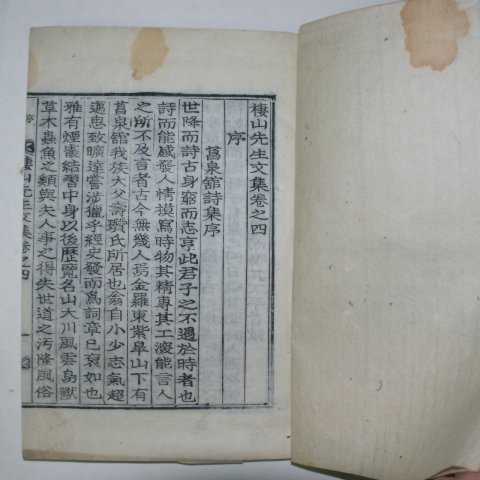 棲山先生文集卷之四
序
菖泉舘詩集序
世降而詩古身窮而志亨此君子之不遇於時者也
詩而能感發人情摸寫時物其精專其工邃能言人
之所不及言者古今無幾人焉金羅東紫皐山下有
菖泉舘我族大父壽瓚氏所居也翁自小少志氣超
邁思致曠達嘗涉獵乎經史發而爲詞章已裒如也
雅有煙霞結習中身以後歷覽名山大川風雲鳥獸
草木蟲魚之類與夫人事之得失世道之汚隆風俗
序 棲山先生文集卷之四 一